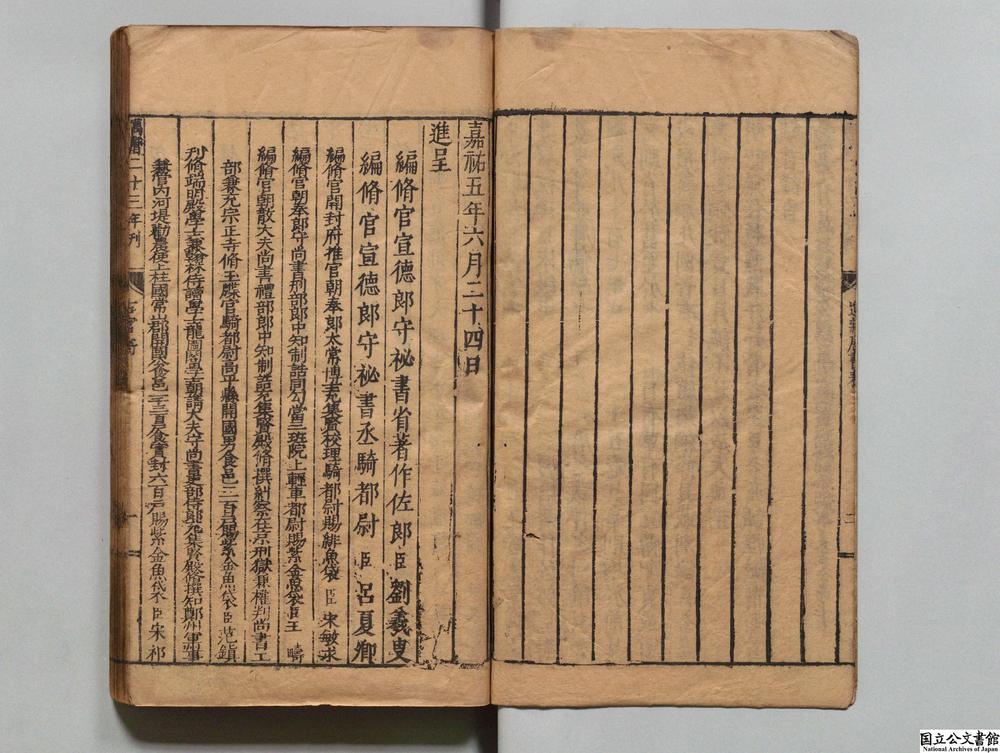 進新唐書表
二
嘉祐五年六月二十四日
進呈
編脩官宣德郎守祕書省著作佐郎臣劉羲叟
編脩官宣德郎守祕書丞騎都尉臣呂夏卿
編脩官開封府推官朝奉郎太常博士充集賢校理騎都尉賜緋魚袋臣宋敏求
編脩官朝奉郎守尚書刑部郎中知制誥同勾當三班院上輕車都尉賜紫金魚袋臣王疇
編脩官朝散大夫尚書禮部郎中知制誥充集賢殿脩撰糾察在京刑獄兼權判尚書工
部兼充宗正寺脩玉牒官騎都尉高平縣開國男食邑三百戶賜紫金魚袋臣范鎮
刋脩端明殿學士兼翰林侍讀學士龍圖閣學士朝請大夫守尚書吏部侍郎充集賢殿脩撰知鄭州軍州事
兼管內河堤勸農使上柱國常山郡開國公食邑二千三百戶食實封六百戶賜紫金魚袋臣宋祁
萬曆二十三年刋
一
国立公文書館
National Archives of Japan